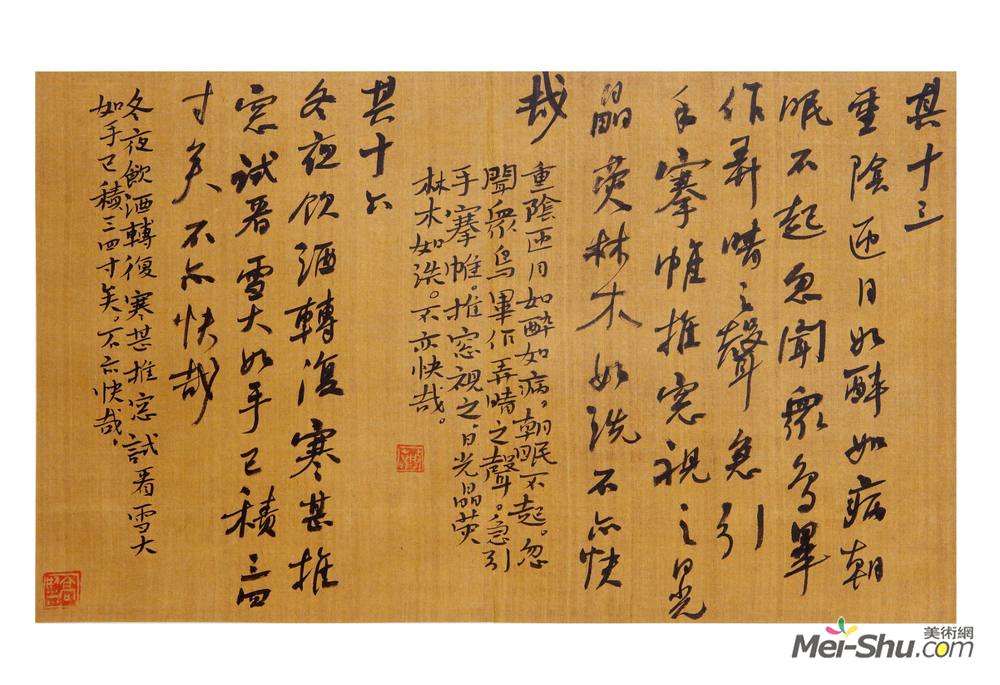 其十三
重陰迊月如醉如病朝
眠不起忽聞眾鳥畢
作弄晴之聲急引
手搴帷推窓視之日光
晶熒林木如洗不亦快
哉
重陰迊月如醉如病。朝眠不起。忽
聞眾鳥畢作弄晴之聲。急引
手搴帷。推窓視之、日光晶熒
林木如洗。不亦快哉。
其十六
冬夜飲酒轉復寒甚推
窓試看雪大如手已積三四
寸矣不亦快哉
冬夜飲酒轉復寒甚推窓試看雪大
如手已積三四寸矣。不亦快哉、
美術網
Mei-Shu.com